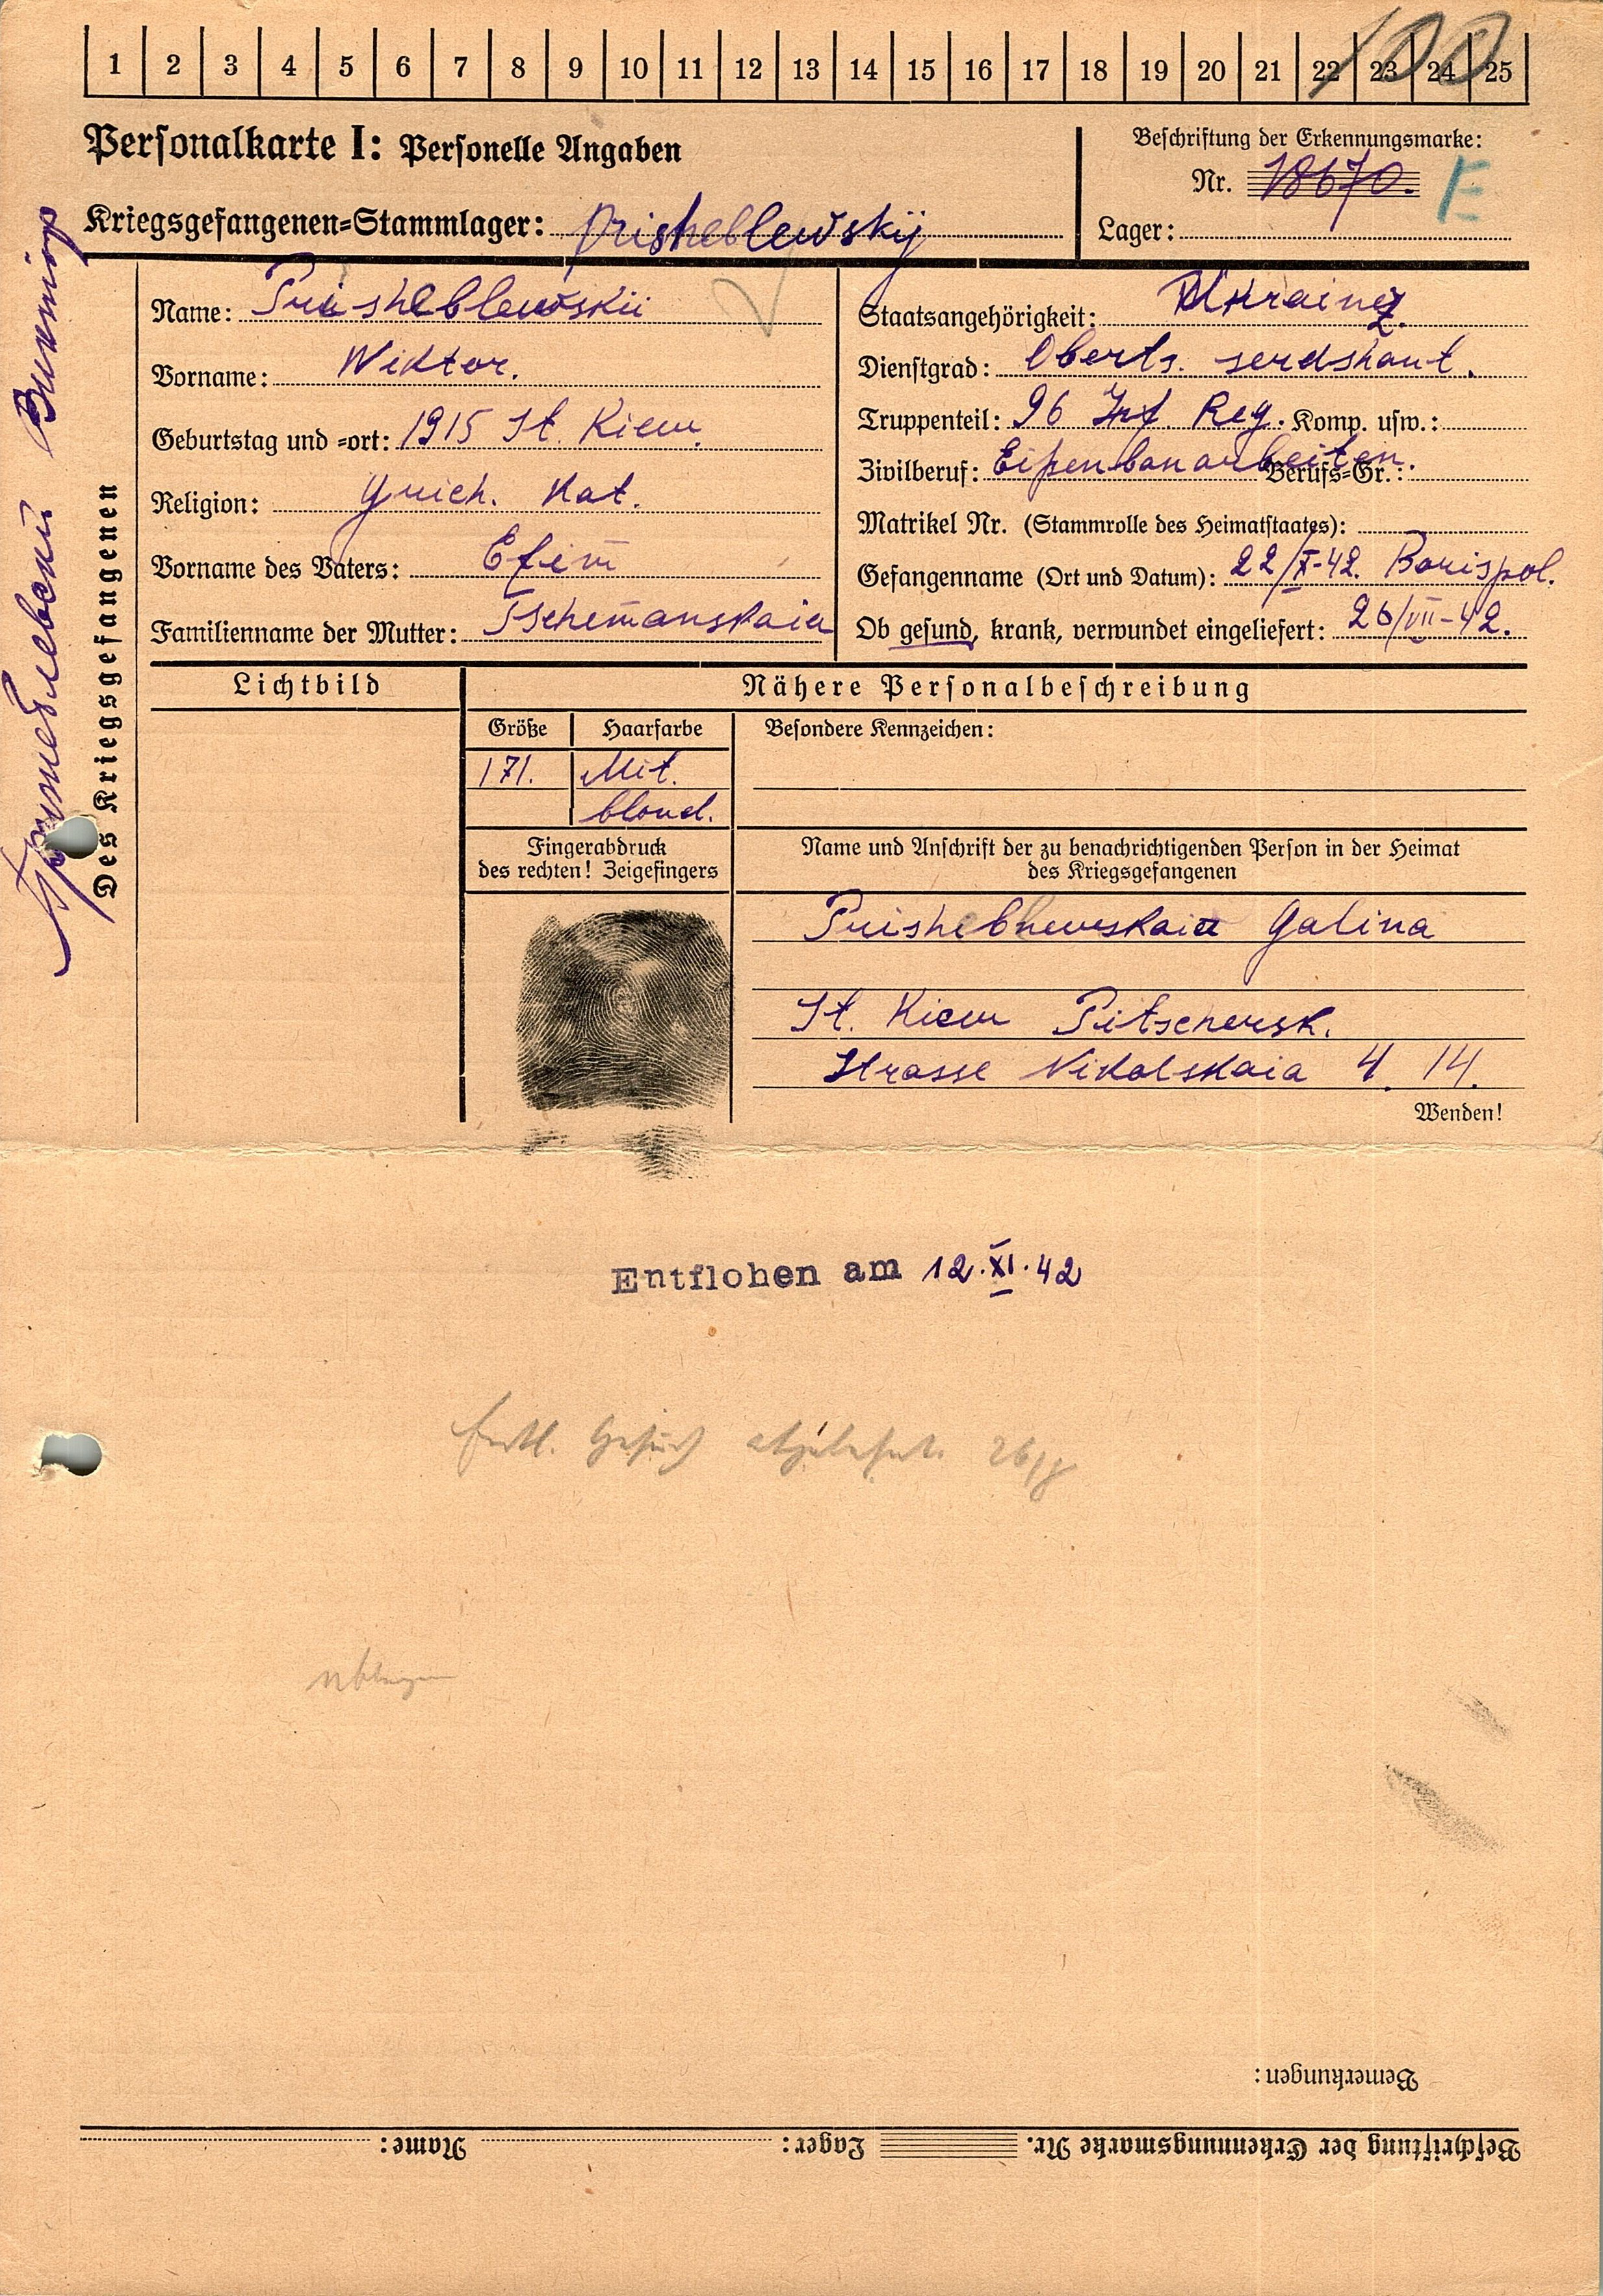 1 2 3 4 5 6 7 8 9 10 11 12 13 14 15 16 17 18 19 20 21 22 23 24 25
100
Personalkarte I: Personelle Angaben
Beschriftung der Erkennungsmarke:
Nr. 18670. E
Kriegsgefangenen=Stammlager: Prisheblewskij
Lager:
Пришеблевский Виктор
Des Kriegsgefangenen
Name: Prisheblewskii
Vorname: Wiktor.
Geburtstag und =ort: 1915 St. Kiew.
Religion: Griech. Kat.
Vorname des Vaters: Efim
Familienname der Mutter: Tschemanskaia
Staatsangehörigkeit: Ukrainez.
Dienstgrad: Oberts. serdshant.
Truppenteil: 96 Inf. Reg. Komp. usw.:
Zivilberuf: Eisenbanarbeiten. Berufs=Gr.:
Matrikel Nr. (Stammrolle des Heimatstaates):
Gefangenname (Ort und Datum): 22/X-42. Borispol.
Ob gesund, krank, verwundet eingeliefert: 26/VII-42.
Lichtbild
Nähere Personalbeschreibung
Größe Haarfarbe Besondere Kennzeichen:
171. Mit.
blond.
Fingerabdruck
des rechten! Zeigefingers
Name und Anschrift der zu benachrichtigenden Person in der Heimat
des Kriegsgefangenen
Prishebnewskaia Galina
St. Kiew Pitschersk.
Strasse Nikolskaia 4. 14.
Wenden!
Entflohen am 12.XI.42
Bemerkungen:
Beschriftung der Erkennungsmarke Nr. Lager: Name: